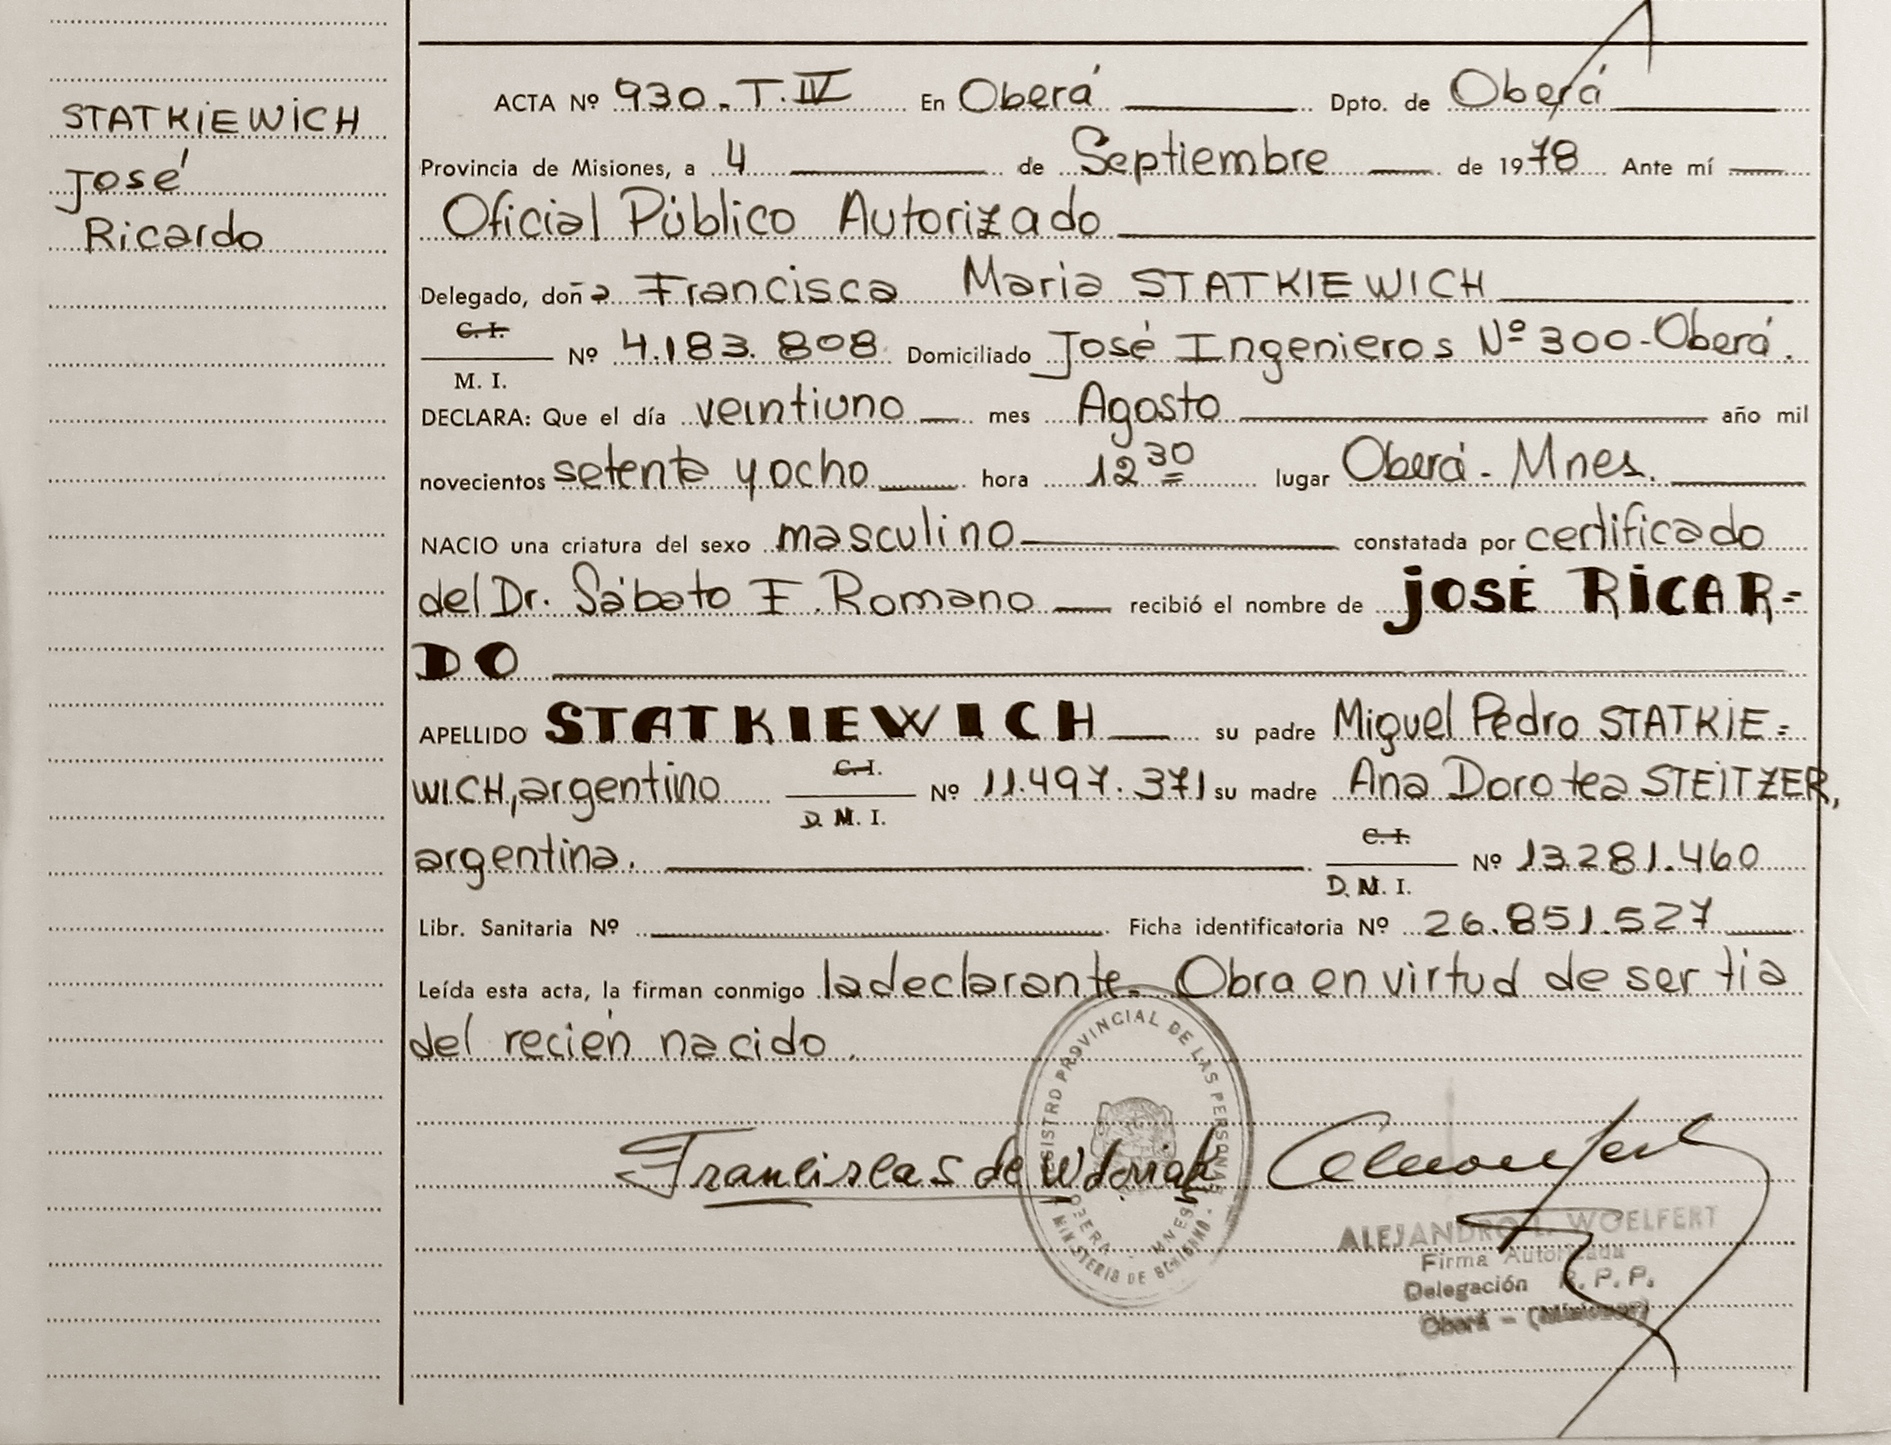 STATKIEWICH
José
Ricardo
ACTA Nº 930-T.IV En Oberá Dpto. de Oberá
Provincia de Misiones, a 4 de Septiembre de 1978 Ante mí
Oficial Público Autorizado
Delegado, doña Francisca Maria STATKIEWICH
C.I.
M. I. Nº 4.183.808 Domiciliado José Ingenieros Nº 300-Oberá.
DECLARA: Que el día veintiuno mes Agosto año mil
novecientos setenta y ocho hora 12 30 lugar Oberá - Mnes.
NACIO una criatura del sexo masculino constatada por certificado
del Dr. Sábato F. Romano recibió el nombre de JOSÉ RICAR=
DO
APELLIDO STATKIEWICH su padre Miguel Pedro STATKIE=
WICH, argentino C.I. D. M. I. Nº 11.497.371 su madre Ana Dorotea STEITZER,
argentina. C.I. D. M. I. Nº 13.281.460
Libr. Sanitaria Nº Ficha identificatoria Nº 26.851.527
Leída esta acta, la firman conmigo la declarante. Obra en virtud de ser tia
del recién nacido.
REGISTRO PROVINCIAL DE LAS PERSONAS
OBERA - MNES
MINISTERIO DE GOBIERNO
Francisca S de
ALEJANDRO L. WOELFERT
Firma Autorizada
Delegación R. P. P.
Oberá - (Misiones)